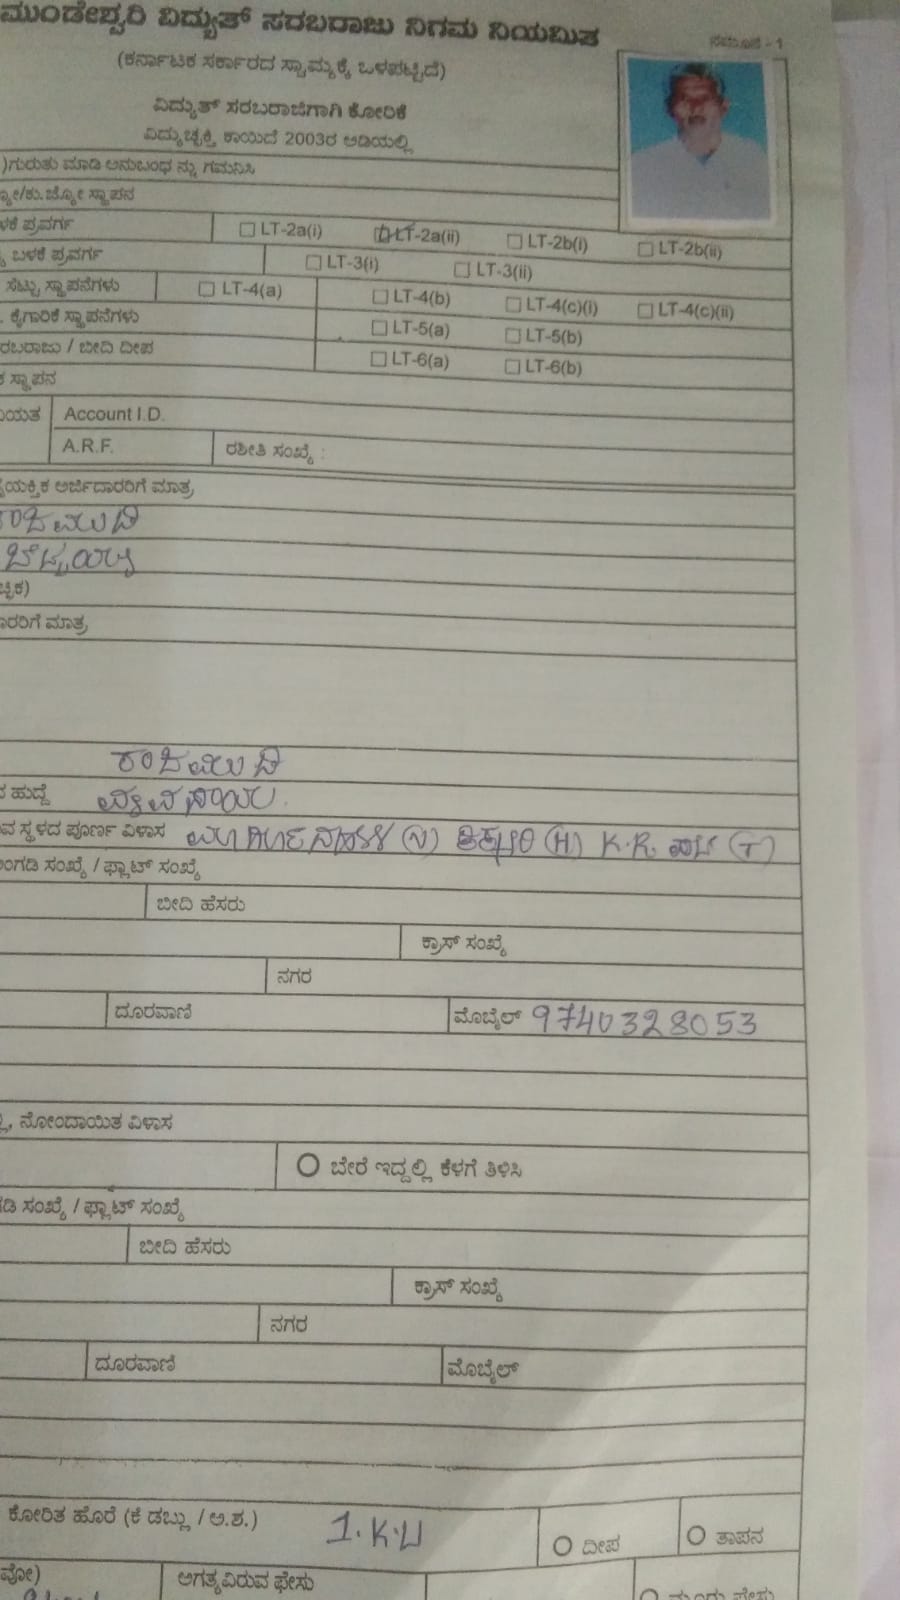 ಮುಂಡೇಶ್ವರಿ ವಿದ್ಯುತ್ ಸರಬರಾಜು ನಿಗಮ ನಿಯಮಿತ
ನಮೂನೆ - 1
(ಕರ್ನಾಟಕ ಸರ್ಕಾರದ ಸ್ವಾಮ್ಯಕ್ಕೆ ಒಳಪಟ್ಟಿದೆ)
ವಿದ್ಯುತ್ ಸರಬರಾಜಿಗಾಗಿ ಕೋರಿಕೆ
ವಿದ್ಯುಚ್ಛಕ್ತಿ ಕಾಯಿದೆ 2003ರ ಅಡಿಯಲ್ಲಿ
)ಗುರುತು ಮಾಡಿ ಅನುಬಂಧ ನ್ನು ಗಮನಿಸಿ
ಸ್ಥಾಪನ
ಳಕೆ ಪ್ರವರ್ಗ LT-2a(i) LT-2a(ii) LT-2b(i) LT-2b(ii)
ಬಳಕೆ ಪ್ರವರ್ಗ LT-3(i) LT-3(ii)
ಸೆಟ್ಟು ಸ್ಥಾಪನೆಗಳು LT-4(a) LT-4(b) LT-4(c)(i) LT-4(c)(ii)
. ಕೈಗಾರಿಕೆ ಸ್ಥಾಪನೆಗಳು LT-5(a) LT-5(b)
ರಬರಾಜು / ಬೀದಿ ದೀಪ LT-6(a) LT-6(b)
ಕ ಸ್ಥಾಪನ
ಯತ Account I.D.
A.R.F. ರಶೀತಿ ಸಂಖ್ಯೆ :
ಯಕ್ತಿಕ ಅರ್ಜಿದಾರರಿಗೆ ಮಾತ್ರ
ಚ್ಛಿಕ)
ಾರರಿಗೆ ಮಾತ್ರ
ರಾಜಮುಡಿ
ನ ಹುದ್ದೆ ವ್ಯವಸಾಯ.
ವ ಸ್ಥಳದ ಪೂರ್ಣ ವಿಳಾಸ (V) ಕಿಕ್ಕೇರಿ (H) K.R. ಪೇಟೆ (T)
ಂಗಡಿ ಸಂಖ್ಯೆ / ಫ್ಲಾಟ್ ಸಂಖ್ಯೆ
ಬೀದಿ ಹೆಸರು
ಕ್ರಾಸ್ ಸಂಖ್ಯೆ
ನಗರ
ದೂರವಾಣಿ ಮೊಬೈಲ್ 9740328053
, ನೋಂದಾಯಿತ ವಿಳಾಸ
ಬೇರೆ ಇದ್ದಲ್ಲಿ ಕೆಳಗೆ ತಿಳಿಸಿ
ಗಡಿ ಸಂಖ್ಯೆ / ಫ್ಲಾಟ್ ಸಂಖ್ಯೆ
ಬೀದಿ ಹೆಸರು
ಕ್ರಾಸ್ ಸಂಖ್ಯೆ
ನಗರ
ದೂರವಾಣಿ ಮೊಬೈಲ್
ಕೋರಿತ ಹೊರೆ (ಕೆ ಡಬ್ಲ್ಯು / ಅ.ಶ.) 1.K.W ದೀಪ ತಾಪನ
ವೋ) ಅಗತ್ಯವಿರುವ ಫೇಸು ಮೂರು ಫೇಸು